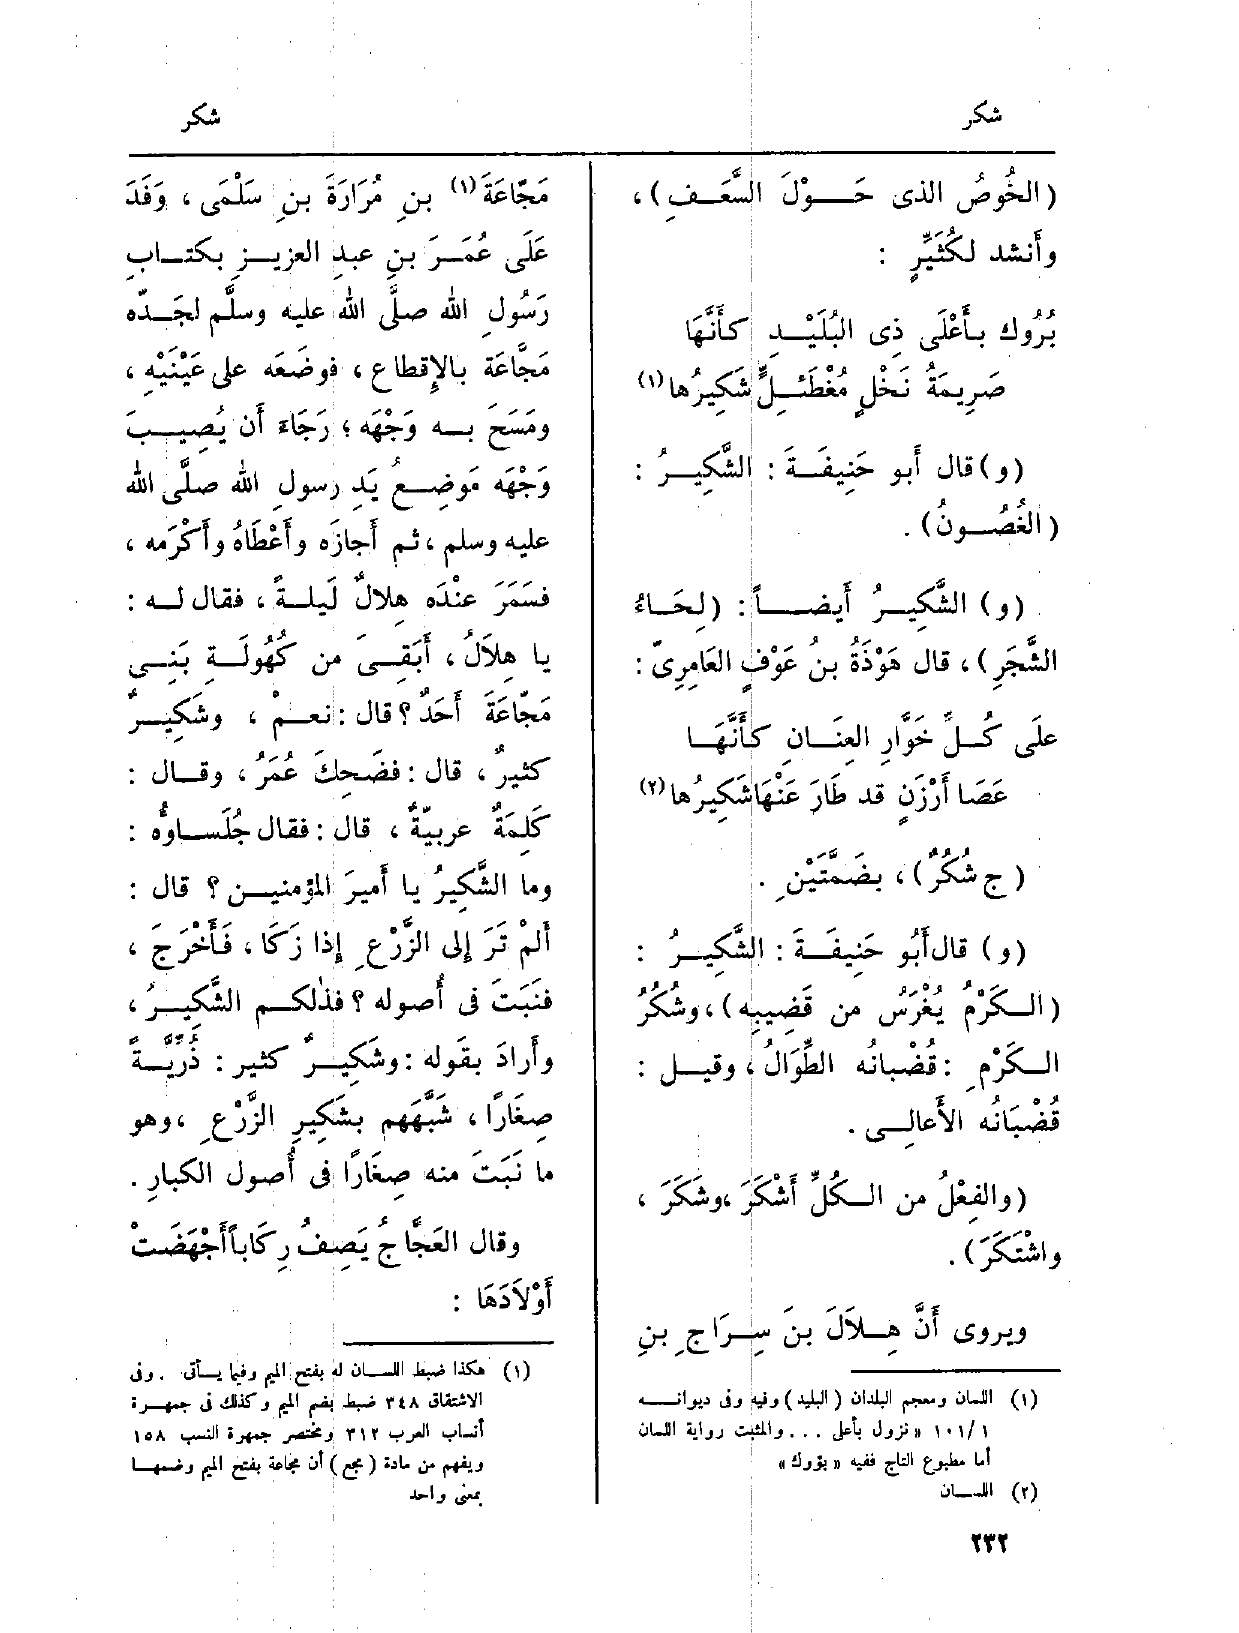 شكر
شكر
(الخُوصُ الذى حَـــوْلَ السَّعَــفِ) ،
وأنشد لكُثَيِّرٍ :
بُرُوك بـأَعْلَى ذِى البُلَيْــدِ كأَنَّهَا
صَرِيمَةُ نَخْلٍ مُغْطَئِلٍّ شَكِيرُها (١)
(و) قال أَبو حَنِيفَـةَ : الشَّكِيــرُ :
(الغُصُــونُ) .
(و) الشَّكِيــرُ أَيضــاً : (لِحَـاءُ
الشَّجَرِ) ، قال هَوْذَةُ بنُ عَوْفٍ العَامِرِىّ :
علَى كُــلِّ خَوَّارِ العِنَــانِ كأَنَّهَــا
عَصَا أَرْزَنٍ قد طَارَ عَنْهَا شَكِيرُها (٢)
(ج شُكُرٌ) ، بضَمَّتَيْنِ .
(و) قال أَبُو حَنِيفَـةَ : الشَّكِيــرُ :
(الـكَرْمُ يُغْرَسُ من قَضِيبِه) ، وشُكُرُ
الـكَرْمِ : قُضْبانُه الطِّوَالُ ، وقيــل :
قُضْبَانُه الأَعالِــى .
(والفِعْلُ من الـكُلِّ أَشْكَرَ ، وشَكَرَ ،
واشْتَكَرَ) .
ويروى أَنَّ هِــلاَلَ بنَ سِــرَاجِ بنِ
(١) اللسان ومعجم البلدان (البليد) وفيه وفى ديوانــه
١٠١/١ «نزول بأعلى ... والمثبت رواية اللسان
أما مطبوع التاج ففيه « بؤوك »
(٢) اللســان
مَجَّاعَةَ (١) بنِ مُرَارَةَ بنِ سَلْمَى ، وَفَدَ
علَى عُمَــرَ بنِ عبدِ العزيــزِ بكتــابِ
رَسُولِ الله صلَّى الله عليه وسلَّم لجَــدّه
مَجَّاعَة بالإِقطاعِ ، فوضَعَه على عَيْنَيْه ،
ومَسَحَ بــه وَجْهَه ؛ رَجَاءَ أَن يُصِيــبَ
وَجْهَه مَوضِــعُ يَدِ رسولِ الله صلَّى الله
عليه وسلم ، ثم أَجازَه وأَعْطَاهُ وأَكْرَمه ،
فسَمَرَ عنْدَه هِلالٌ لَيلــةً ، فقال لــه :
يا هِلاَلُ ، أَبَقِــىَ من كُهُولَــةِ بَنِــى
مَجّاعَةَ أَحَدٌ ؟ قال : نعــم ، وشَكِيــرٌ
كثيرٌ ، قال : فضَحِكَ عُمَرُ ، وقــال :
كَلِمَةٌ عربيّةٌ ، قال : فقال جُلَســاؤُه :
وما الشَّكِيرُ يا أَميرَ المؤمنيــن ؟ قال :
أَلمْ تَرَ إِلى الزَّرْعِ إِذا زَكَا ، فَأَخْرَجَ ،
فنَبَتَ فى أُصوله ؟ فذٰلكــم الشَّكيــرُ ،
وأَرادَ بقَوله : وشَكِيــرٌ كثير : ذُرِّيَّــةً
صِغَارًا ، شَبَّهَهم بشَكِيرِ الزَّرْعِ ، وهو
ما نَبَتَ منه صِغَارًا فى أُصول الكبارِ .
وقال العَجَّاجُ يَصِفُ رِكَاباً أَجْهَضَتْ
أَوْلاَدَهَا :
(١) هكذا ضبط اللســان له بفتح الميم وفيما يــأتى . وفى
الاشتقاق ٣٤٨ ضبط بضم الميم وكذلك فى جمهــرة
أنساب العرب ٣١٢ ومختصر جمهرة النسب ١٥٨
ويفهم من مادة (مجع) أن مجاعة بفتح الميم وضمهــا
بمعنى واحد
٢٣٢